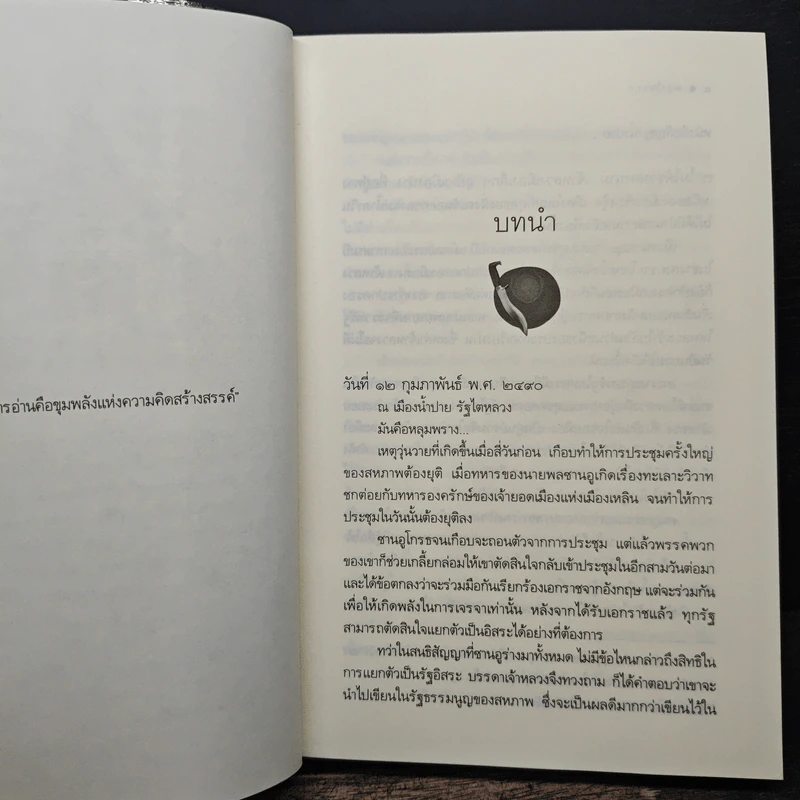 ารอ่านคือขุมพลังแห่งความคิดสร้างสรรค์"
บทนำ
วันที่ ๑๒ กุมภาพันธ์ พ.ศ. ๒๔๙๐
ณ เมืองน้ำปาย รัฐไตหลวง
มันคือหลุมพราง...
เหตุวุ่นวายที่เกิดขึ้นเมื่อสี่วันก่อน เกือบทำให้การประชุมครั้งใหญ่
ของสหภาพต้องยุติ เมื่อทหารของนายพลซานอูเกิดเรื่องทะเลาะวิวาท
ชกต่อยกับทหารองครักษ์ของเจ้ายอดเมืองแห่งเมืองเหลิน จนทำให้การ
ประชุมในวันนั้นต้องยุติลง
ซานอูโกรธจนเกือบจะถอนตัวจากการประชุม แต่แล้วพรรคพวก
ของเขาก็ช่วยเกลี้ยกล่อมให้เขาตัดสินใจกลับเข้าประชุมในอีกสามวันต่อมา
และได้ข้อตกลงว่าจะร่วมมือกันเรียกร้องเอกราชจากอังกฤษ แต่จะร่วมกัน
เพื่อให้เกิดพลังในการเจรจาเท่านั้น หลังจากได้รับเอกราชแล้ว ทุกรัฐ
สามารถตัดสินใจแยกตัวเป็นอิสระได้อย่างที่ต้องการ
ทว่าในสนธิสัญญาที่ซานอูร่างมาทั้งหมด ไม่มีข้อไหนกล่าวถึงสิทธิใน
การแยกตัวเป็นรัฐอิสระ บรรดาเจ้าหลวงจึงทวงถาม ก็ได้คำตอบว่าเขาจะ
นำไปเขียนในรัฐธรรมนูญของสหภาพ ซึ่งจะเป็นผลดีมากกว่าเขียนไว้ใน